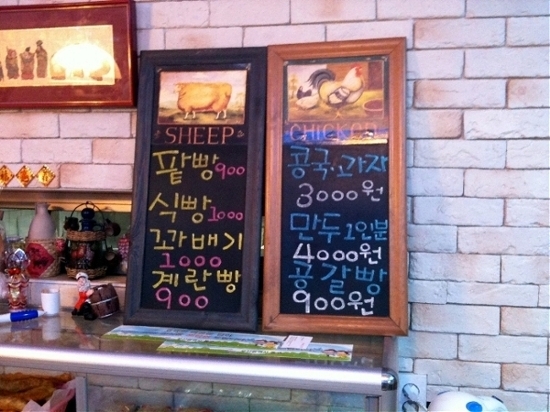 SHEEP
팥빵 900
식빵 1000
꽈배기
1000
계란빵
900
CHICKEN
콩국·과자
3000원
만두 1인분
4000원
공갈빵
900원